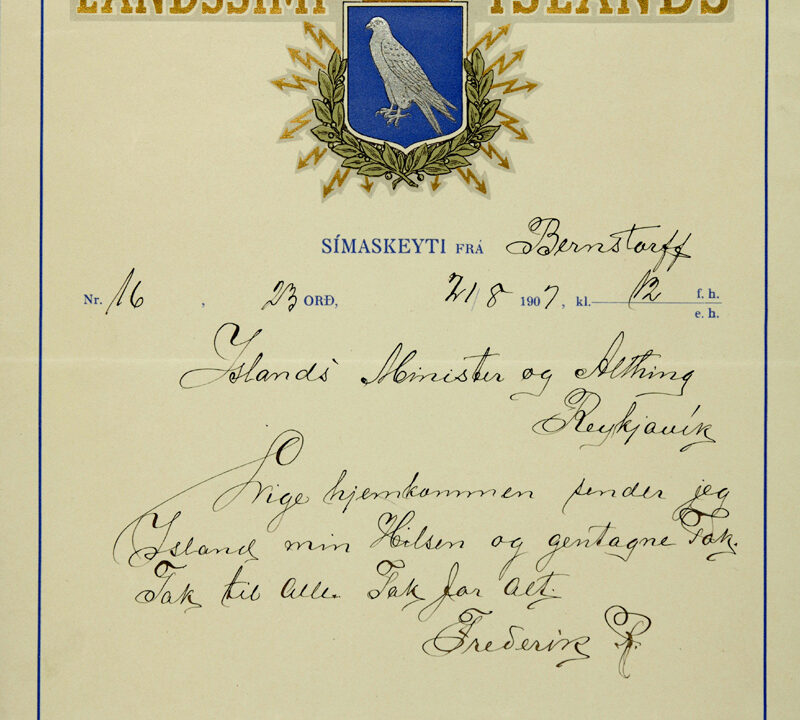 LANDSSÍMI ÍSLANDS
SÍMASKEYTI FRÁ Bernstorff
Nr. 16 , 23 ORÐ, 21/8 1907, kl. 12 f. h.
e. h.
Islands Minister og Althing
Reykjavík
hjemkommen sender jeg
Island min Hilsen og gentagne Tak.
Tak til alle. Tak for alt.
Frederik R.